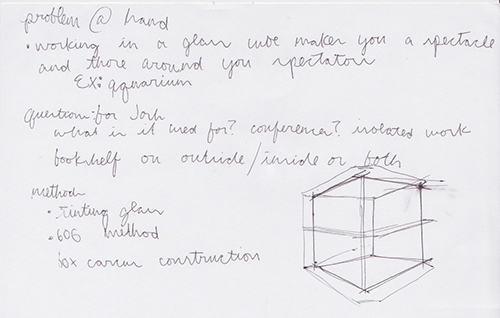 problem @ hand
• working in a glass cube makes you a spectacle
and those around you spectators
EX: aquarium
question: for Josh
what is it used for? conference? isolated work
bookshelf on outside/inside or both
methods
• tinting glass
• 606 method
box carcass construction